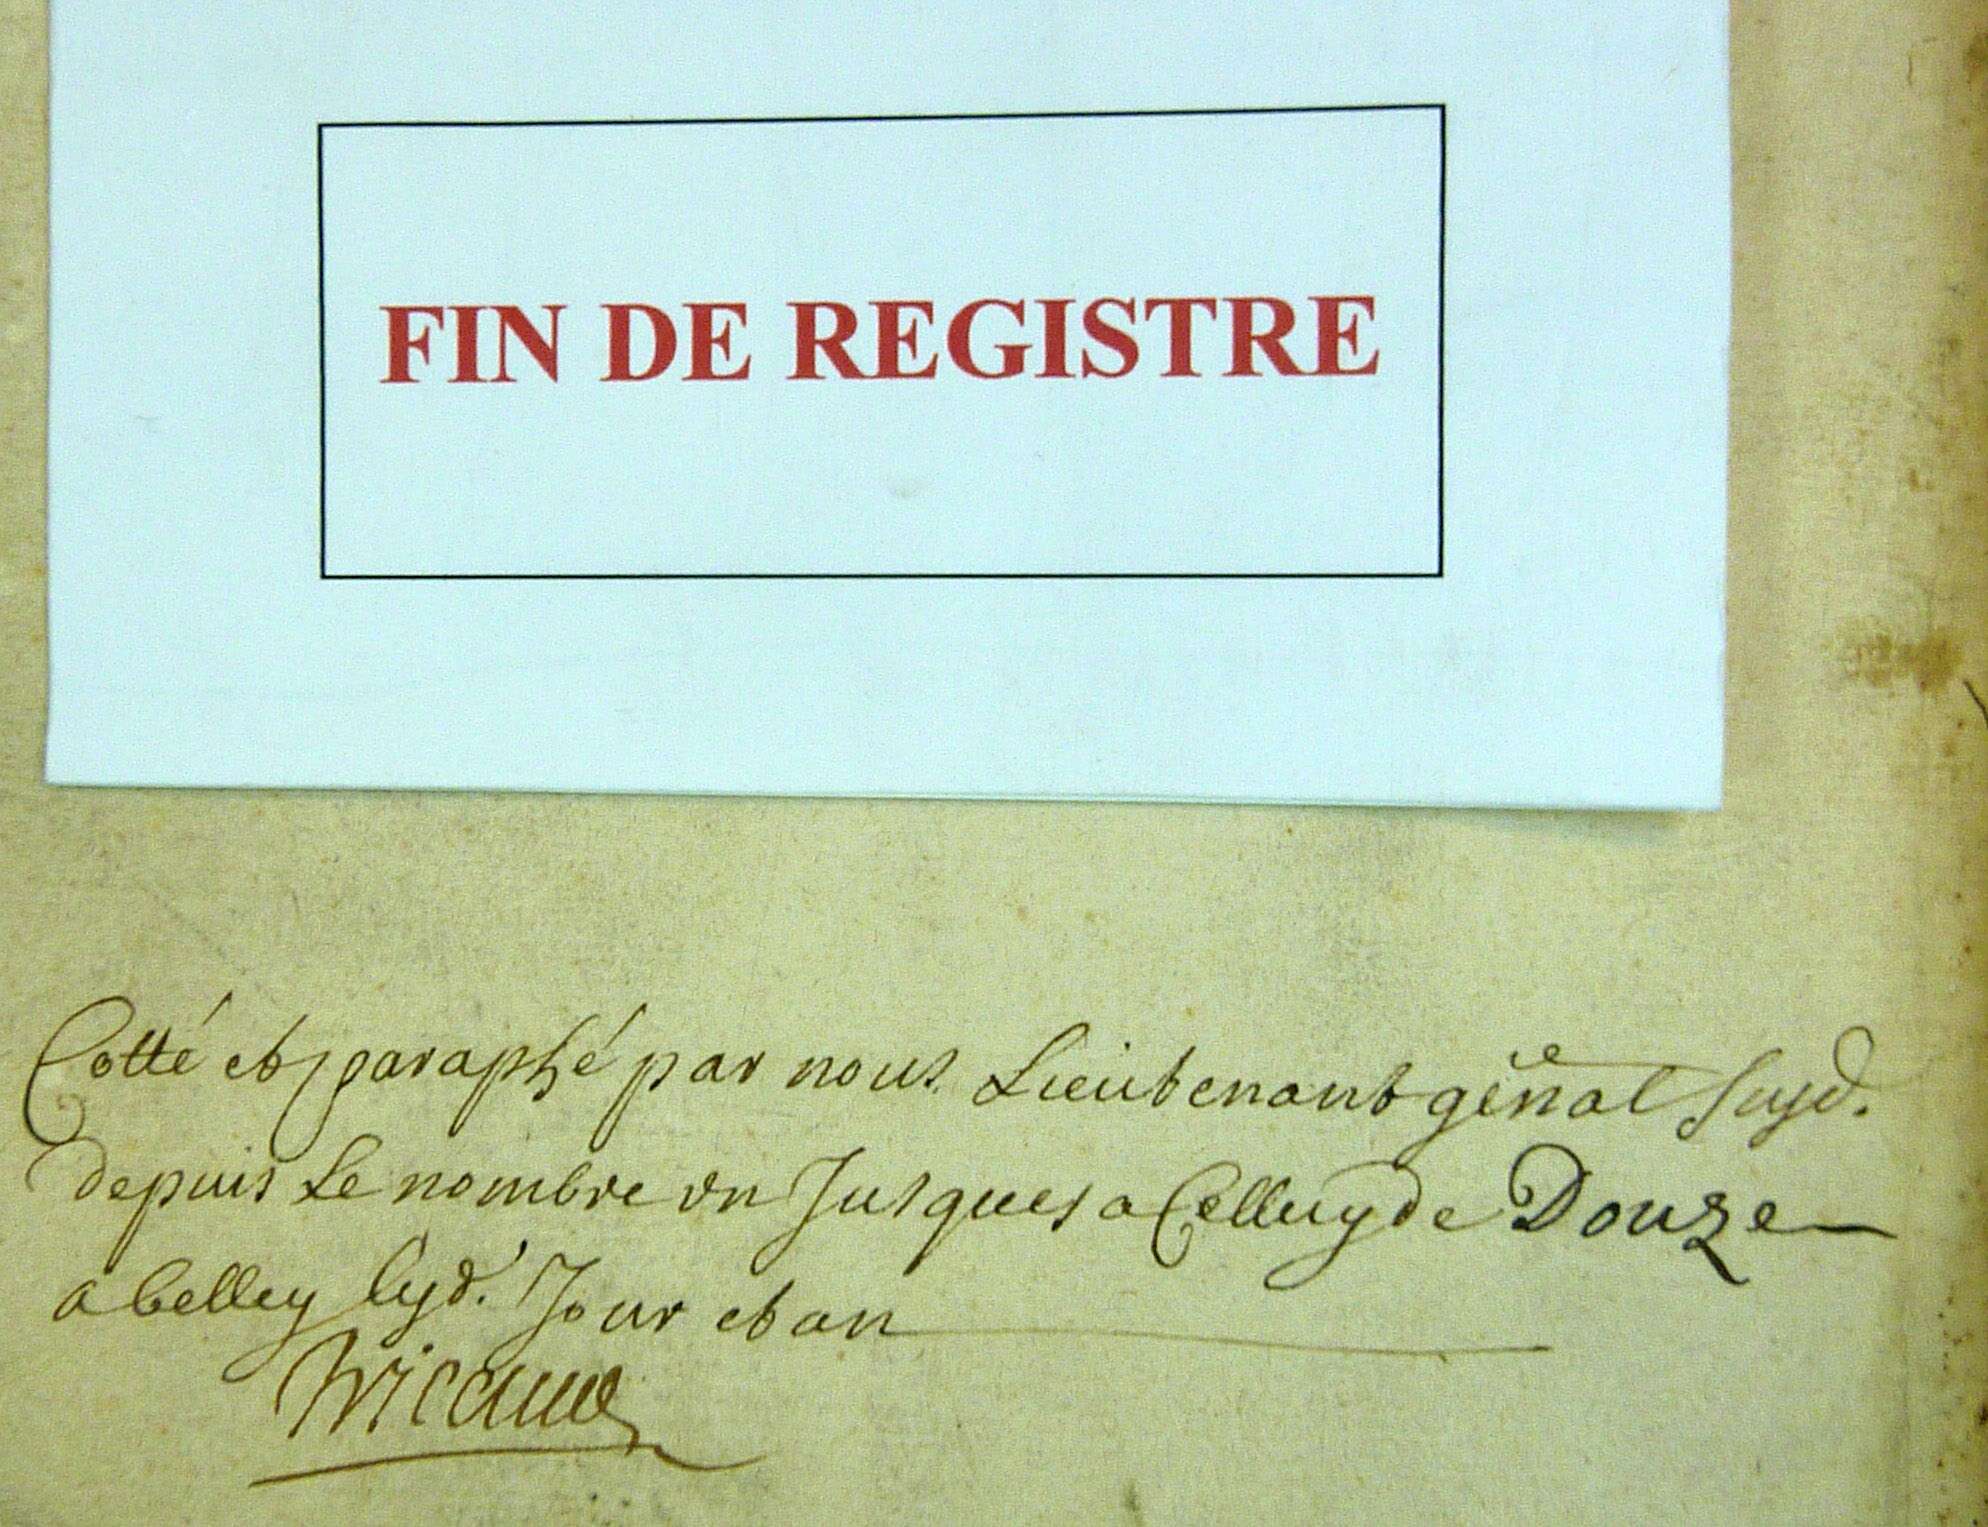 FIN DE REGISTRE
Cotté et paraphé par nous Lieutenant gñal suyd.
depuis Le nombre un Jusques a Celluy de Douze
a belley lesd. Jour et an